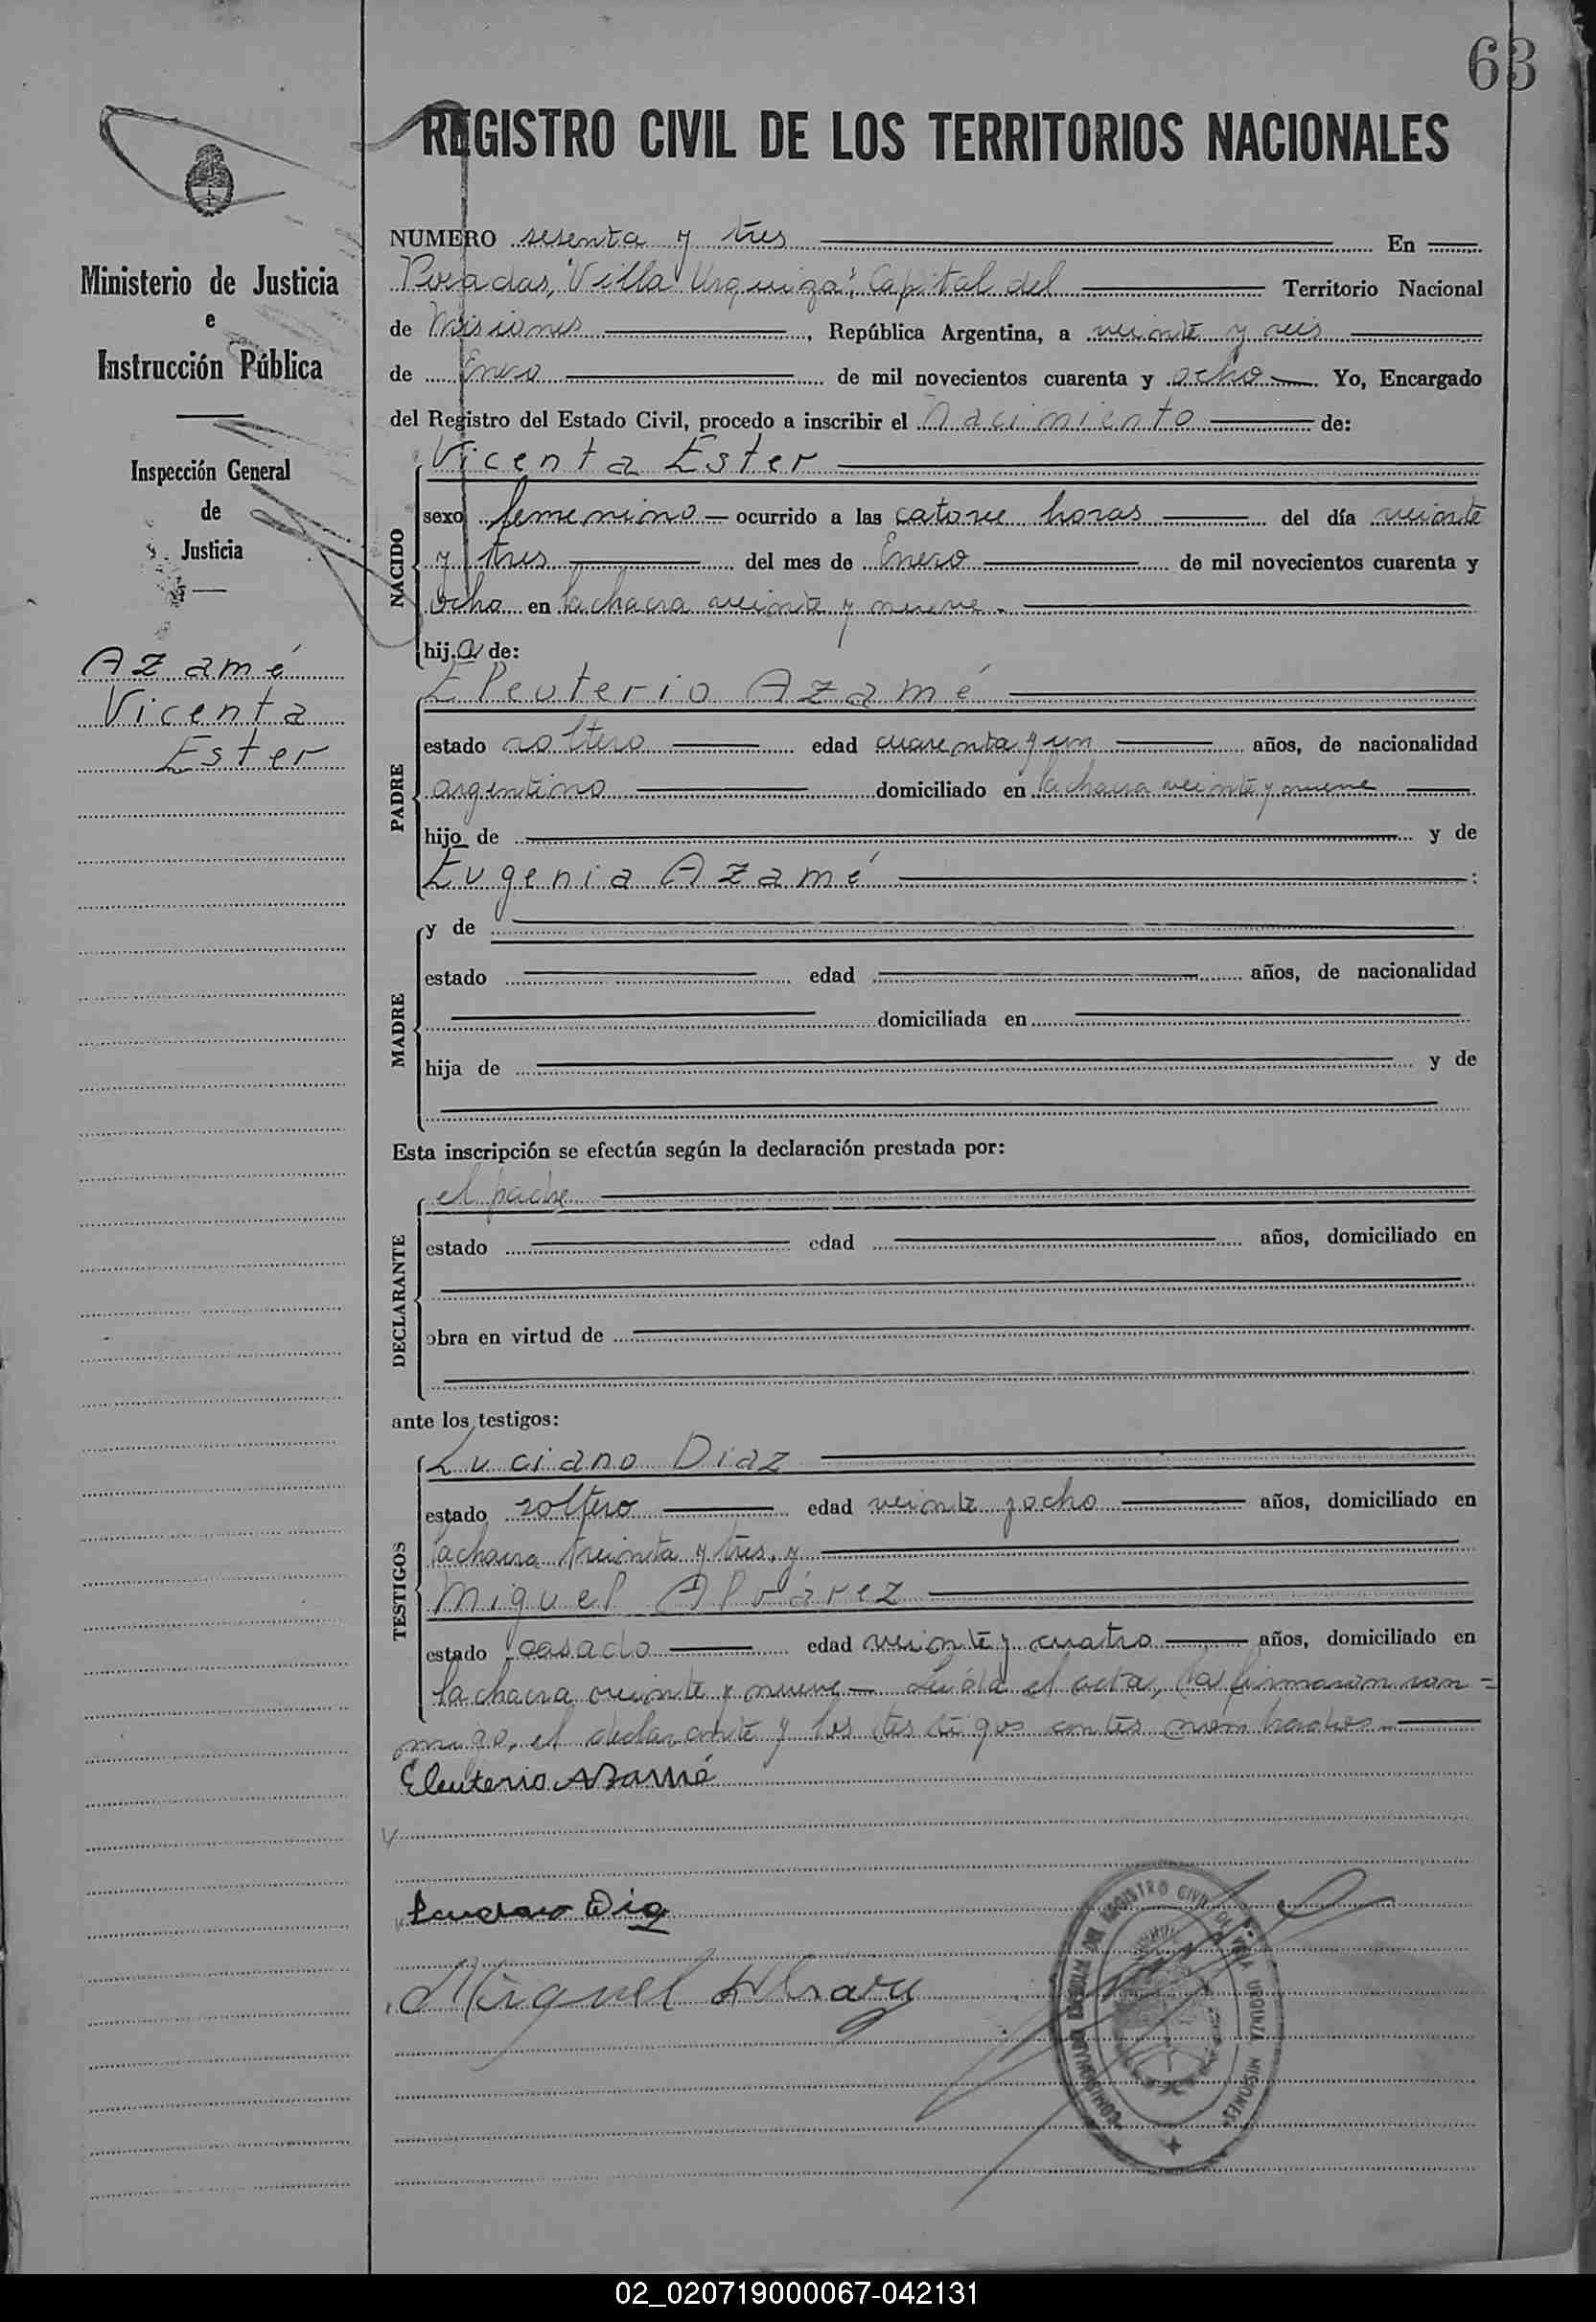 63
REGISTRO CIVIL DE LOS TERRITORIOS NACIONALES
Ministerio de Justicia
e
Instrucción Pública
Inspección General
de
Justicia
Azamé
Vicenta
Ester
NUMERO sesenta y tres En
Posadas, "Villa Urquiza", Capital del Territorio Nacional
de Misiones, República Argentina, a veinte y seis
de Enero de mil novecientos cuarenta y ocho Yo, Encargado
del Registro del Estado Civil, procedo a inscribir el nacimiento de:
NACIDO
Vicenta Ester
sexo femenino ocurrido a las catorce horas del día veinte
y tres del mes de Enero de mil novecientos cuarenta y
ocho en la chacra veinte y nueve.
hija de:
PADRE
Eleuterio Azamé
estado soltero edad cuarenta y un años, de nacionalidad
argentino domiciliado en la chacra veinte y nueve
hijo de y de
Eugenia Azamé :
MADRE
y de
estado edad años, de nacionalidad
domiciliada en
hija de y de
Esta inscripción se efectúa según la declaración prestada por:
DECLARANTE
el padre
estado edad años, domiciliado en
obra en virtud de
ante los testigos:
TESTIGOS
Luciano Diaz
estado soltero edad veinte y ocho años, domiciliado en
la chacra treinta y tres, y
Miguel Alvárez
estado casado edad veinte y cuatro años, domiciliado en
la chacra veinte y nueve — Leída el acta, la firmaron con=
migo, el declarante y los testigos antes nombrados.
Eleuterio Azamé
Luciano Dia
Miguel Alvarez
REGISTRO CIVIL DE VILLA URQUIZA MISIONES
02_020719000067-042131